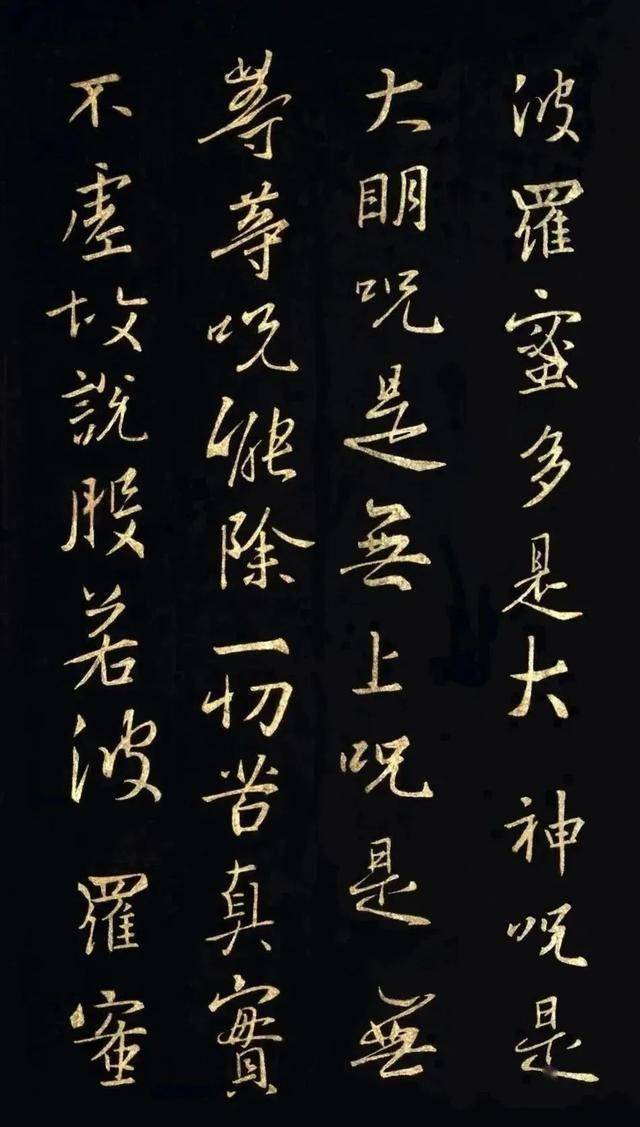 波羅蜜多是大神呪是
大明呪是無上呪是無
等等呪能除一切苦真實
不虛故說般若波羅蜜